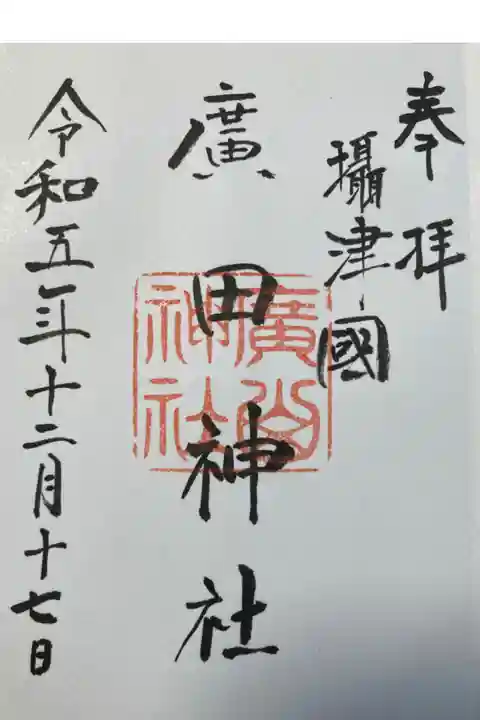 奉拝
攝津國
廣田神社
廣田
神社
令和五年十二月十七日